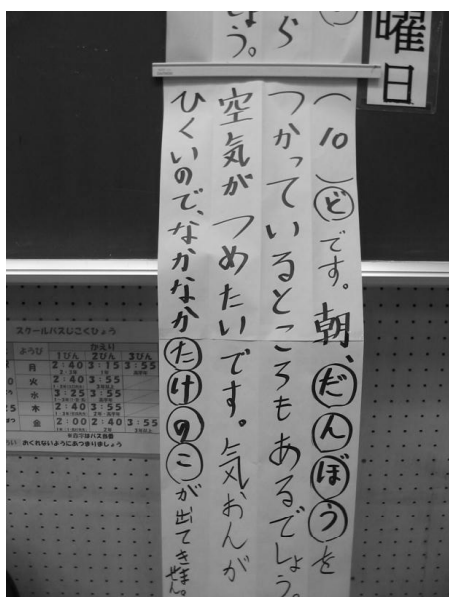 曜日
ら
しょう。
(10)どです。朝、だんぼうを
つかっているところもあるでしょう。
空気がつめたいです。気おんが
ひくいので、なかなかたけのこが出てきません。
スクールバスじこくひょう
ようび かえり
1びん 2びん 3びん
月 2:40 3:15 3:55
火 2:40 3:55
水 3:25 3:55
木 2:40 3:55
金 2:00 2:40 3:55
おくれないようにあつまりましょう